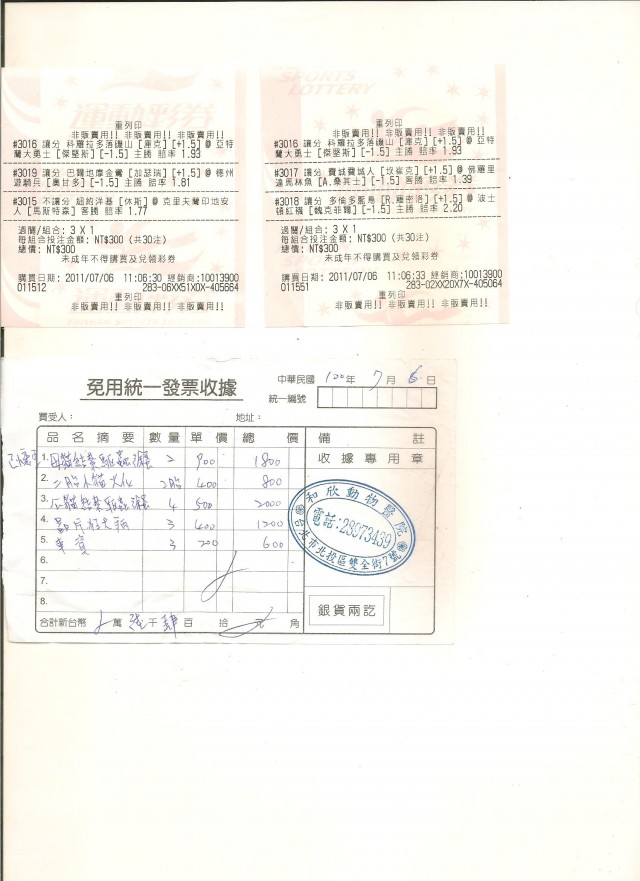 重列印
非販賣用!! 非販賣用!! 非販賣用!!
#3016 讓分 科羅拉多落磯山 [庫克] [+1.5] @ 亞特
蘭大勇士 [傑堅斯] [-1.5] 主勝 賠率 1.93
#3019 讓分 巴爾地摩金鶯 [加瑟瑞] [+1.5] @ 德州
遊騎兵 [奧甘多] [-1.5] 主勝 賠率 1.81
#3015 不讓分 紐約洋基 [休斯] @ 克里夫蘭印地安
人 [馬斯特森] 客勝 賠率 1.77
過關/組合: 3 X 1
每組合投注金額: NT$300 (共30注)
總價: NT$300
未成年不得購買及兌領彩券
購買日期: 2011/07/06 11:06:30 經銷商:10013900
011512 283-06XX51X0X-405664
重列印
非販賣用!! 非販賣用!! 非販賣用!!
SPORTS
LOTTERY
重列印
非販賣用!! 非販賣用!! 非販賣用!!
#3016 讓分 科羅拉多落磯山 [庫克] [+1.5] @ 亞特
蘭大勇士 [傑堅斯] [-1.5] 主勝 賠率 1.93
#3017 讓分 費城費城人 [坎崔克] [+1.5] @ 佛羅里
達馬林魚 [A.桑其士] [-1.5] 客勝 賠率 1.39
#3018 讓分 多倫多藍鳥 [R.羅密洛] [+1.5] @ 波士
頓紅襪 [魏克菲爾] [-1.5] 主勝 賠率 2.20
過關/組合: 3 X 1
每組合投注金額: NT$300 (共30注)
總價: NT$300
未成年不得購買及兌領彩券
購買日期: 2011/07/06 11:06:33 經銷商:10013900
011551 283-02XX20X7X-405064
重列印
非販賣用!! 非販賣用!! 非販賣用!!
免用統一發票收據
中華民國 100年 7月 6日
統一編號
買受人: 地址:
品名摘要 數量 單價 總價 備註
收據專用章
1. 母貓結紮驅蟲 2 900 1800
2. 二胎小貓火化 2胎 400 800
3. 公貓結紮驅蟲 4 500 2000
4. 3 400 1200
5. 車資 3 200 600
6.
7.
8.
和欣動物醫院
電話:28973439
台北市北投區雙全街7號
銀貨兩訖
合計新台幣 萬 陸千肆百 拾 元 角